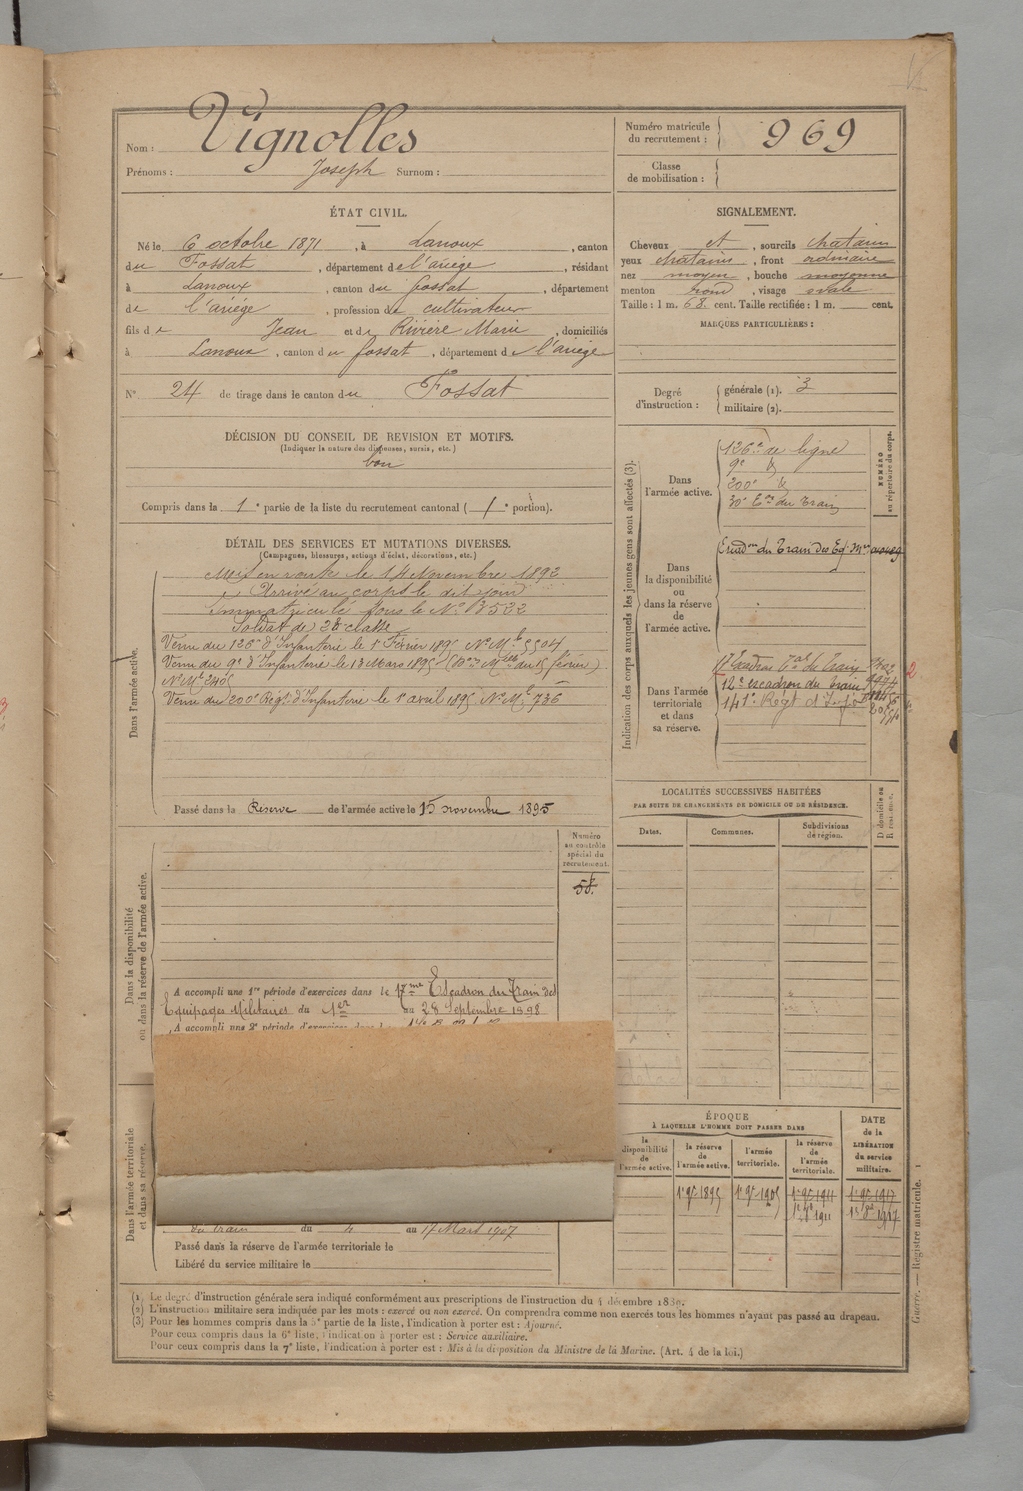 Nom : Vignolles
Prénoms : Joseph Surnom :
Numéro matricule du recrutement : 969
Classe de mobilisation :
ÉTAT CIVIL.
Né le 6 octobre 1871, à Lanoux, canton
du Fossat, département de l'ariége, résidant
à Lanoux, canton du fossat, département
de l'ariége, profession de cultivateur
fils de Jean et de Rivière Marie, domiciliés
à Lanoux, canton du fossat, département de l'ariége
N° 24 de tirage dans le canton du Fossat
SIGNALEMENT.
Cheveux et, sourcils chatains
yeux chatains, front ordinaire
nez moyen, bouche moyenne
menton rond, visage ovale
Taille : 1 m. 68 cent. Taille rectifiée : 1 m. cent.
MARQUES PARTICULIÈRES :
Degré d'instruction : générale (1). 3
militaire (2).
DÉCISION DU CONSEIL DE REVISION ET MOTIFS.
(Indiquer la nature des dispenses, sursis, etc.)
bon
Compris dans la 1e partie de la liste du recrutement cantonal ( 1e portion).
DÉTAIL DES SERVICES ET MUTATIONS DIVERSES.
(Campagnes, blessures, actions d'éclat, décorations, etc.)
Dans l'armée active.
Mis en route le 14 Novembre 1892
Arrivé au corps le dit jour
Immatriculé sous le N° B522
Soldat de 2e classe
Venu du 126e d'Infanterie le 1r Février 1895 N° Mle 5504
Venu du 9e d'Infanterie le 13 Mars 1895
N° Mle 2405
Venu du 200e Régt d'Infanterie le 1r avril 1895 N° Mle 736
Passé dans la Réserve de l'armée active le 15 novembre 1895
Indication des corps auxquels les jeunes gens sont affectés (3).
NUMÉRO au répertoire du corps.
Dans l'armée active.
126e de ligne
9e
200e
30e Eon du Train
Dans la disponibilité ou dans la réserve de l'armée active.
Escadon du Train des Eq. Mres
Dans l'armée territoriale et dans sa réserve.
17 Escadron Tal du Train
12e escadron du train
141e Régt d'Infie
2
LOCALITÉS SUCCESSIVES HABITÉES
PAR SUITE DE CHANGEMENTS DE DOMICILE OU DE RÉSIDENCE.
Dates. Communes. Subdivisions de région. D domicile ou R résidence.
Numéro au contrôle spécial du recrutement.
Dans la disponibilité ou dans la réserve de l'armée active.
A accompli une 1re période d'exercices dans le 17me Escadron du Train des
Equipages Militaires du 1er au 28 Septembre 1898
A accompli une 2e période d'exercices dans le
Dans l'armée territoriale et dans sa réserve.
du train du 4 au 17 Mars 1907
Passé dans la réserve de l'armée territoriale le
Libéré du service militaire le
ÉPOQUE
À LAQUELLE L'HOMME DOIT PASSER DANS
la disponibilité de l'armée active. la réserve de l'armée active. l'armée territoriale. la réserve de l'armée territoriale.
DATE de la LIBÉRATION du service militaire.
1r 9e 1895 1r 9e 1905 1r 9e 1911 1r 9e 1917
(1) Le degré d'instruction générale sera indiqué conformément aux prescriptions de l'instruction du 4 décembre 1889.
(2) L'instruction militaire sera indiquée par les mots : exercé ou non exercé. On comprendra comme non exercés tous les hommes n'ayant pas passé au drapeau.
(3) Pour les hommes compris dans la 5e partie de la liste, l'indication à porter est : Ajourné.
Pour ceux compris dans la 6e liste, l'indication à porter est : Service auxiliaire.
Pour ceux compris dans la 7e liste, l'indication à porter est : Mis à la disposition du Ministre de la Marine. (Art. 4 de la loi.)
Guerre. — Registre matricule. 1